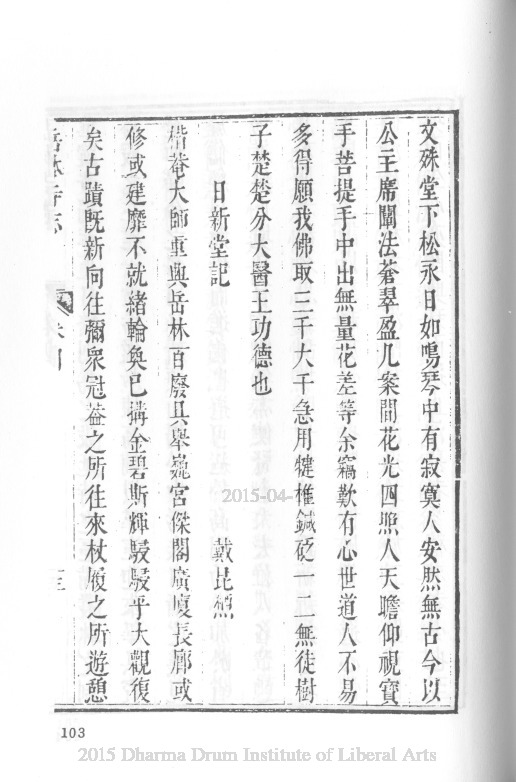 文殊堂下松永日如鳴琴中有寂寞人安然無古今以
公主席闡法蒼翠盈几案間花光四照人天瞻仰視寶
手菩提手中出無量花差等余竊歎有心世道人不易
多得願我佛取三千大千急用犍椎鍼砭一二無徒樹
子楚楚分大醫王功德也
日新堂記 戴毘
楷菴大師重興岳林百廢具舉巍宮傑閣廣廈長廊或
修或建靡不就緒輪奐已搆金碧斯輝駸駸乎大觀復
矣古蹟既新向往彌衆冠葢之所往來杖履之所遊憩
岳林寺志
三
103
2015-04-
2015 Dharma Drum Institute of Liberal Arts